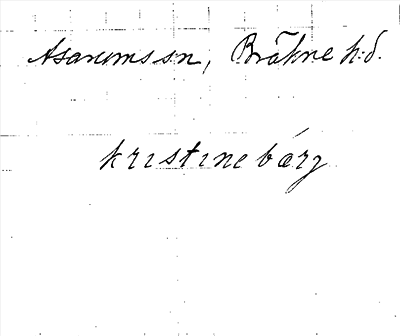 Asarums sn, Bräkne h:d.
kristinebærj